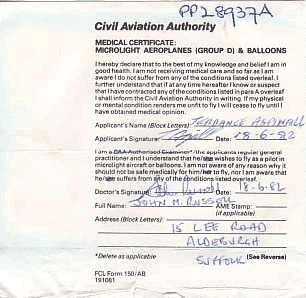 PP28937A
Civil Aviation Authority
MEDICAL CERTIFICATE:
MICROLIGHT AEROPLANES (GROUP D) & BALLOONS
I hereby declare that to the best of my knowledge and belief I am in
good health. I am not receiving medical care and so far as I am
aware I do not suffer from any of the conditions listed overleaf. I
further understand that if at any time hereafter I know or suspect
that I have contracted any of the conditions listed in para A overleaf
I shall inform the Civil Aviation Authority in writing. If my physical
or mental condition renders me unfit to fly I will cease to fly until I
have obtained medical opinion.
Applicant's Name (Block Letters): TERRANCE ASPINALL
Applicant's Signature: Date: 18-6-82
I am a CAA Authorised Examiner*/the applicants regular general
practitioner and I understand that he/she wishes to fly as a pilot of
microlight aircraft or balloons. I am not aware of any reason why it
should not be safe medically for him/her to fly, nor am I aware that
he/she suffers from any of the conditions listed overleaf.
Doctor's Signature: Date: 18.6.82
Full Name: JOHN M. RUSSELL AME Stamp:
(if applicable)
Address (Block Letters):
15 LEE ROAD
ALDEBURGH
SUFFOLK
*Delete as applicable (See Reverse)
FCL Form 150/AB
191081